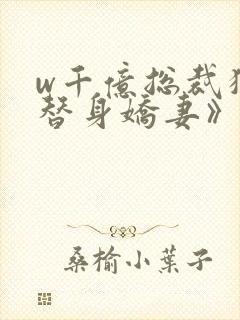 w千億总裁
替身嬌妻》
桑榆小葉子